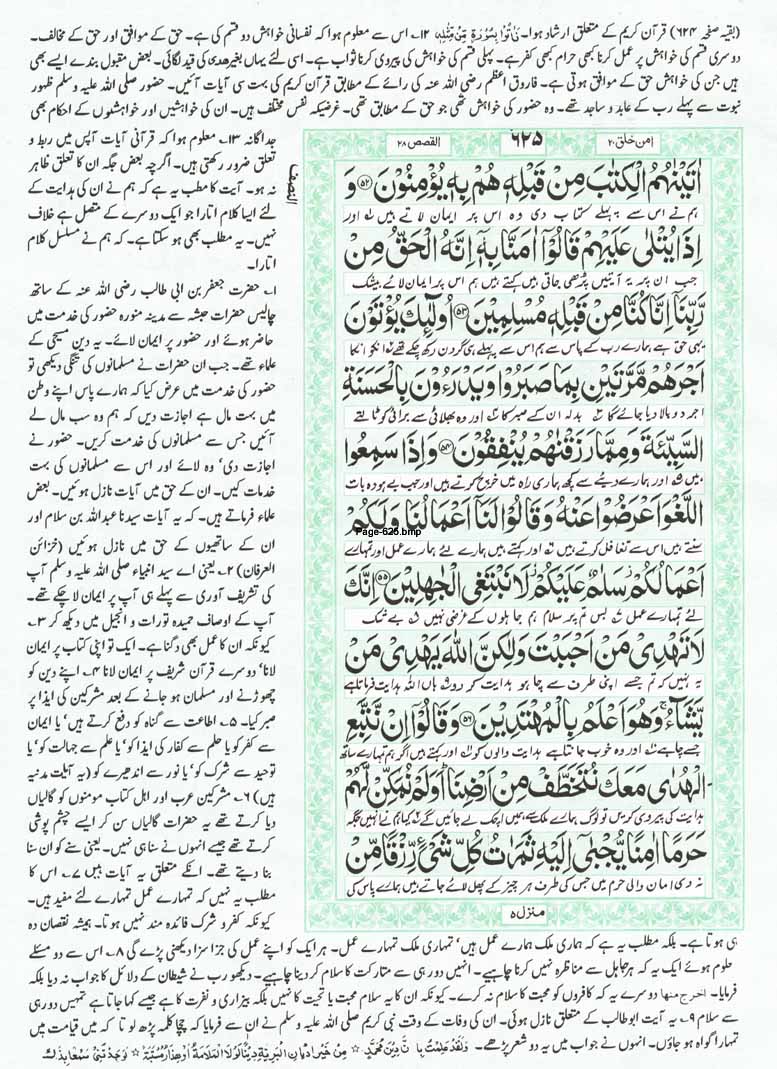 (بقیہ صفحہ ۶۲۴) قرآن کریم کے متعلق ارشاد ہوا۔ فَاْتُوْا بِسُوْرَةٍ مِّنْ مِّثْلِهٖ ۱۲۔ اس سے معلوم ہوا کہ نفسانی خواہش دو قسم کی ہے۔ حق کے موافق اور حق کے مخالف۔
دوسری قسم کی خواہش پر عمل کرنا کبھی حرام کبھی کفر ہے۔ پہلی قسم کی خواہش کی پیروی کرنا ثواب ہے۔ اسی لئے یہاں بغیر ھدی کی قید لگائی۔ بعض مقبول بندے ایسے بھی
ہیں جن کی خواہش حق کے موافق ہوتی ہے۔ فاروق اعظم رضی اللہ عنہ کی رائے کے مطابق قرآن کریم کی بہت سی آیات آئیں۔ حضور صلی اللہ علیہ وسلم ظہور
نبوت سے پہلے رب کے عابد و ساجد تھے۔ وہ حضور کی خواہش تھی جو حق کے مطابق تھی۔ غرضیکہ نفس مختلف ہیں۔ ان کی خواہشیں اور خواہشوں کے احکام بھی
جداگانہ ۱۳۔ معلوم ہوا کہ قرآنی آیات آپس میں ربط و
تعلق ضرور رکھتی ہیں۔ اگرچہ بعض جگہ ان کا تعلق ظاہر
نہ ہو۔ آیت کا مطلب یہ ہے کہ ہم نے ان کی ہدایت کے
لئے ایسا کلام اتارا جو ایک دوسرے کے متصل ہے خلاف
نہیں۔ یہ مطلب بھی ہو سکتا ہے۔ کہ ہم نے مسلسل کلام
اتارا۔
۱۔ حضرت جعفر بن ابی طالب رضی اللہ عنہ کے ساتھ
چالیس حضرات حبشہ سے مدینہ منورہ حضور کی خدمت میں
حاضر ہوئے اور حضور پر ایمان لائے۔ یہ دین مسیحی کے
علماء تھے۔ جب ان حضرات نے مسلمانوں کی تنگی دیکھی تو
حضور کی خدمت میں عرض کیا کہ ہمارے پاس اپنے وطن
میں بہت مال ہے اجازت دیں کہ ہم وہ سب مال لے
آئیں جس سے مسلمانوں کی خدمت کریں۔ حضور نے
اجازت دی' وہ لائے اور اس سے مسلمانوں کی بہت
خدمات کیں۔ ان کے حق میں آیات نازل ہوئیں۔ بعض
علماء فرماتے ہیں۔ کہ یہ آیات سیدنا عبداللہ بن سلام اور
ان کے ساتھیوں کے حق میں نازل ہوئیں (خزائن
العرفان) ۲۔ یعنی اے سید انبیاء صلی اللہ علیہ وسلم آپ
کی تشریف آوری سے پہلے ہی آپ پر ایمان لا چکے تھے۔
آپ کے اوصاف حمیدہ تورات و انجیل میں دیکھ کر ۳۔
کیونکہ ان کا عمل بھی دگنا ہے۔ ایک تو اپنی کتاب پر ایمان
لانا' دوسرے قرآن شریف پر ایمان لانا ۴۔ اپنے دین کو
چھوڑنے اور مسلمان ہو جانے کے بعد مشرکین کی ایذا پر
صبر کیا۔ ۵۔ اطاعت سے گناہ کو دفع کرتے ہیں' یا ایمان
سے کفر کو یا حلم سے کفار کی ایذا کو' یا علم سے جہالت کو' یا
توحید سے شرک کو' یا نور سے اندھیرے کو (یہ آیت مدنیہ
ہیں) ۶۔ مشرکین عرب اور اہل کتاب مومنوں کو گالیاں
دیا کرتے تھے یہ حضرات گالیاں سن کر ایسے چشم پوشی
کرتے تھے جیسے انہوں نے سنا ہی نہیں۔ یعنی سنے کو ان سنا
بنا دیتے تھے۔ انکے متعلق یہ آیات ہیں ۷۔ اس کا
مطلب یہ نہیں کہ تمہارے عمل تمہارے لئے مفید ہیں۔
کیونکہ کفر و شرک فائدہ مند نہیں ہوتا۔ ہمیشہ نقصان دہ
النصف
امن خلق ۲۰
۶۲۵
القصص ۲۸
اٰتَیْنٰهُمُ الْکِتٰبَ مِنْ قَبْلِهٖ هُمْ بِهٖ یُؤْمِنُوْنَ ﴿۵۲﴾ وَ
ہم نے اس سے پہلے کتاب دی وہ اس پر ایمان لاتے ہیں اور
اِذَا یُتْلٰی عَلَیْهِمْ قَالُوْۤا اٰمَنَّا بِهٖۤ اِنَّهُ الْحَقُّ مِنْ
جب ان پر یہ آیتیں پڑھی جاتی ہیں کہتے ہیں ہم اس پر ایمان لائے بیشک
رَّبِّنَاۤ اِنَّا کُنَّا مِنْ قَبْلِهٖ مُسْلِمِیْنَ ﴿۵۳﴾ اُولٰٓئِكَ یُؤْتَوْنَ
یہی حق ہے ہمارے رب کے پاس سے ہم اس سے پہلے ہی گردن رکھ چکے تھے انکو انکا
اَجْرَهُمْ مَّرَّتَیْنِ بِمَا صَبَرُوْا وَیَدْرَءُوْنَ بِالْحَسَنَةِ
اجر دوبالا دیا جائے گا بدلہ ان کے صبر کا اور وہ بھلائی سے برائی کو ٹالتے
السَّیِّئَةَ وَمِمَّا رَزَقْنٰهُمْ یُنْفِقُوْنَ ﴿۵۴﴾ وَاِذَا سَمِعُوا
ہیں اور ہمارے دیئے سے کچھ ہماری راہ میں خرچ کرتے ہیں اور جب بے ہودہ بات
اللَّغْوَ اَعْرَضُوْا عَنْهُ وَقَالُوْا لَنَاۤ اَعْمَالُنَا وَلَکُمْ
سنتے ہیں اس سے تغافل کرتے ہیں اور کہتے ہیں ہمارے لئے ہمارے عمل اور تمہارے
Page-625.bmp
اَعْمَالُکُمْ سَلٰمٌ عَلَیْکُمْ لَا نَبْتَغِی الْجٰهِلِیْنَ ﴿۵۵﴾ اِنَّكَ
لئے تمہارے عمل بس تم پر سلام ہم جاہلوں کے غرضی نہیں بے شک
لَا تَهْدِیْ مَنْ اَحْبَبْتَ وَلٰکِنَّ اللّٰهَ یَهْدِیْ مَنْ
یہ نہیں کہ تم جسے اپنی طرف سے چاہو ہدایت کر دو ہاں اللہ ہدایت فرماتا ہے
یَّشَآءُ وَهُوَ اَعْلَمُ بِالْمُهْتَدِیْنَ ﴿۵۶﴾ وَقَالُوْۤا اِنْ نَّتَّبِعِ
جسے چاہے اور وہ خوب جانتا ہے ہدایت والوں کو اور کہتے ہیں اگر ہم تمہارے ساتھ
الْهُدٰی مَعَكَ نُتَخَطَّفْ مِنْ اَرْضِنَا اَوَلَمْ نُمَکِّنْ لَّهُمْ
ہدایت کی پیروی کریں تو لوگ ہمارے ملک سے ہمیں اچک لے جائیں گے کیا ہم نے انہیں جگہ
حَرَمًا اٰمِنًا یُّجْبٰۤی اِلَیْهِ ثَمَرٰتُ کُلِّ شَیْءٍ رِّزْقًا مِّنْ
نہ دی امان والی حرم میں جس کی طرف ہر چیز کے پھل لائے جاتے ہیں ہمارے پاس کی
منزل ۵
ہی ہوتا ہے۔ بلکہ مطلب یہ ہے کہ ہماری ملک ہمارے عمل ہیں' تمہاری ملک تمہارے عمل۔ ہر ایک کو اپنے عمل کی جزا سزا دیکھنی پڑے گی ۸۔ اس سے دو مسئلے
معلوم ہوئے ایک یہ کہ ہر جاہل سے مناظرہ نہیں کرنا چاہیے۔ انہیں دور ہی سے متارکت کا سلام کر دینا چاہیے۔ دیکھو رب نے شیطان کے دلائل کا جواب نہ دیا بلکہ
فرمایا۔ اخرج منها دوسرے یہ کہ کافروں کو محبت کا سلام نہ کرے۔ کیونکہ ان کا یہ سلام محبت یا تحیت کا نہیں بلکہ بیزاری و نفرت کا ہے جیسے کہا جاتا ہے تمہیں دور ہی
سے سلام ۹۔ یہ آیت ابوطالب کے متعلق نازل ہوئی۔ ان کی وفات کے وقت نبی کریم صلی اللہ علیہ وسلم نے ان سے فرمایا کہ چچا کلمہ پڑھ لو تا کہ میں قیامت میں
تمہارا گواہ ہو جاؤں۔ انہوں نے جواب میں یہ دو شعر پڑھے۔ وَلَقَدْ عَلِمْتُ بِاَنَّ دِیْنَ مُحَمَّدٍ ☆ مِنْ خَیْرِ اَدْیَانِ الْبَرِیَّةِ دِیْنًا لَوْلَا الْمَلَامَةُ اَوْ حِذَارُ مَسَبَّةٍ ☆ لَوَجَدْتَنِیْ سَمْحًا بِذَاكَ